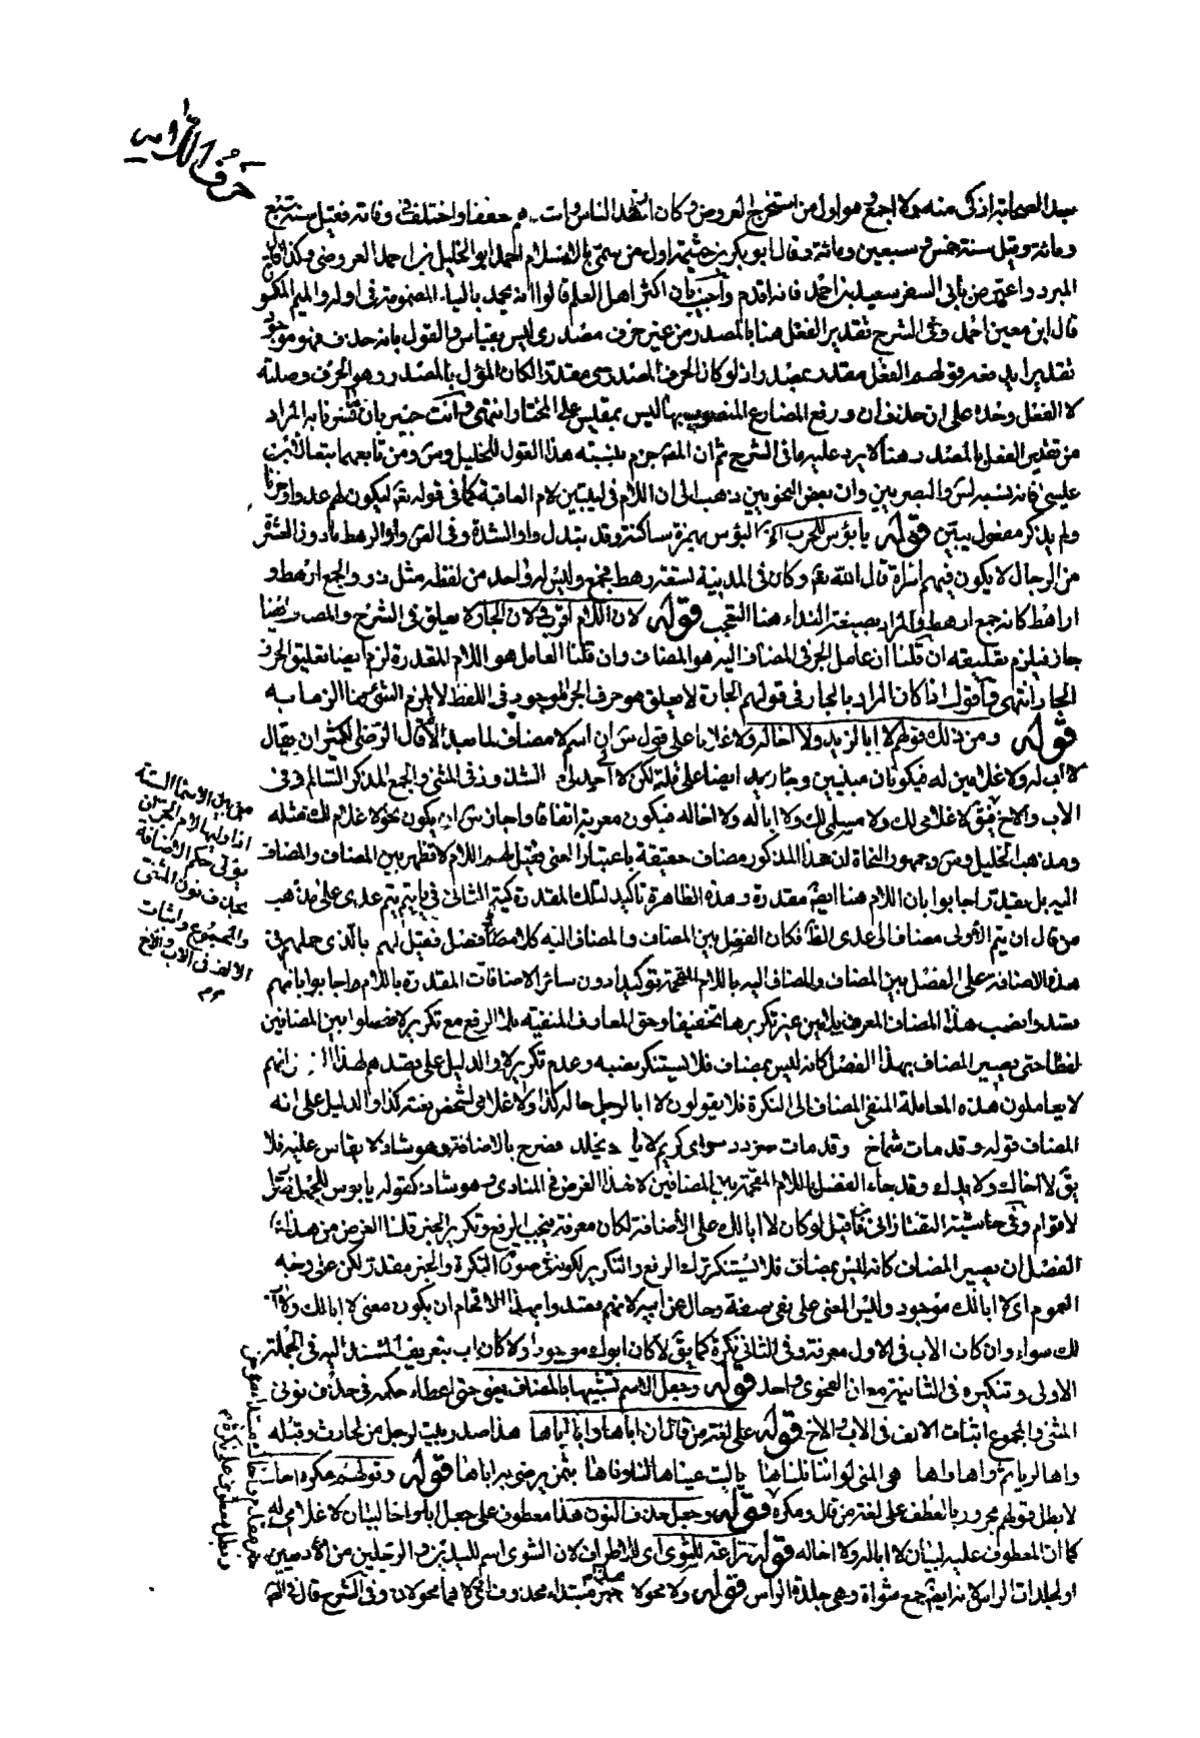 حرف اللام
بعد الصحابة اذكى منه ولا اجمع وهو اول من استخرج العروض وكان ازهد الناس واختلف في وفاته فقيل سنة سبع
ومائة وقيل سنة خمس وسبعين ومائة وقال ابو بكر بن خيثمة اول من سمى بالاسلام احمد ابو الخليل بن احمد العروضي وكذا قال
المبرد واعترض بابي السفر سعيد بن احمد فانه اقدم واجيب بان اكثر اهل العلم قالوا انه يحمد بالياء المضمومة في اوله والميم المكسو
قال ابن معين احمد وفي الشرح تقدير الفعل هنا بالمصدر من غير حرف مصدري ليس بقياس والقول بانه حذف فهو موجود
تقديرا قولهم الفعل مقدر بمصدر اذ لو كان الحرف المصدري مقدرا لكان المؤل بالمصدر وهو الحرف وصلته
لا الفعل وحده على ان حذف ان ورفع المضارع المنصوب بها ليس بمقيس على المختار انتهى وانت خبير بان المراد
من تقدير الفعل بالمصدر هنا لا يرد عليه ما في الشرح ثم ان المص جزم بنسبته هذا القول للخليل وس ومن تابعهما تبعا لابن
عيسى فانه نسبه لس والبصريين وان بعض النحويين ذهب الى ان اللام في ليبين لام العاقبة كما في قوله تع ليكون لهم عدوا وحزنا
ولم يذكر مفعول يبين قوله يا بؤس للحرب الخ البؤس بهمزة ساكنة وقد تبدل واوا الشدة وفي الرهط ما دون العشرة
من الرجال لا يكون فيهم امراة قال الله تع وكان في المدينة تسعة رهط فجمع وليس له واحد من لفظه مثل ذود والجمع ارهط و
اراهط كانه جمع ارهط والمراد بصيغة النداء هنا التعجب قوله لان اللام اقرب ولان الجار لا يعلق في الشرح والمص ايضا
جاز فيلزم تعليقه ان قلنا ان عامل الجر في المضاف اليه هو المضاف وان قلنا العامل هو اللام المقدرة لزم ايضا تعليق الحرف
الجار انتهى واقول اذا كان المراد بالجار في قولهم الجارة لا يعلق هو حرف الجر الموجود في اللفظ لا يلزم الشئ مما الزما به
قوله ومن ذلك قولهم لا ابا لزيد ولا اخا له ولا غلامى له على قول س ان اسم لا مضاف لما بعد اللام قال الرضى الكثير ان يقال
لا اب له ولا غلامين له فيكونان مبنيين وجاز ايضا على قلة لكن لا الى الشذوذ في المثنى والجمع المذكر السالم وفي
الاب والاخ فيق لا غلامى لك ولا مسلمى لك ولا ابا له ولا اخا له فيكون معربة اتفاقا واجاز س ان يكون نحو لا غلام لك مثله
ومذهب الخليل وس وجمهور النحاة ان هذا المذكور مضاف حقيقة باعتبار المعنى فقيل لهم اللام لا تظهر بين المضاف والمضاف
اليه بل يقدر اجابوا بان اللام هنا ايضا مقدرة وهذه الظاهرة تاكيد لتلك المقدرة كتيم الثانى في يا تيم تيم عدى على مذهب
من قال ان تيم الاولى مضاف الى عدى الظ فكان الفصل بين المضاف والمضاف اليه كلا فصل فقيل لهم بالذى حملهم في
هذه الاضافة على الفصل بين المضاف والمضاف اليه باللام المقحمة توكيدا دون سائر الاضافات المقدرة باللام واجابوا بانهم
قصدوا نصب هذا المضاف المعرف بلا من غير تكريرها تخفيفا وحق المعارف المنفية بلا الرفع مع تكرير لا ففصلوا بين المضافين
لفظا حتى يصير المضاف بهذا الفصل كانه ليس بمضاف فلا يستنكر نصبه وعدم تكرير لا والدليل على قصدهم لهذا انهم
لا يعاملون هذه المعاملة المنفى المضاف الى النكرة فلا يقولون لا ابا لرجل حاله كذا ولا غلامى لشخص نعته كذا والدليل على انه
المضاف قوله وقد مات شماخ وقد مات مزرد واى كريم لا اباك يخلد فصرح بالاضافة وهو شاذ لا يقاس عليه فلا
يق لا اخاك ولا يدك وقد جاء الفصل باللام المقحمة بين المضافين لا لهذا الغرض في المنادى وهو شاذ كقوله يا بوس للجهل ضرارا
لاقوام وفي حاشية التفتازانى فان قيل لو كان لا ابا لك على الاضافة لكان معرفة فيجب الرفع وتكرير الخبر قلنا الغرض من هذا
الفصل ان يصير المضاف كانه ليس بمضاف فلا يستنكر ترك الرفع والتكرير لكونه في صورة النكرة والخبر مقدر لكن على وجه
العموم اى لا ابا لك موجود وليس المعنى على نفى صفة وحال عن ابيه لانهم قصدوا بهذا الاقحام ان يكون معنى لا ابا لك ولا اب
لك سواء وان كان الاب في الاول معرفة وفي الثانى نكرة كما يق لا كان ابوك موجودا ولا كان اب بتعريف المسند اليه في الجملة
الاولى وتنكيره في الثانية مع ان الفحوى واحد قوله وجعل الاسم شبيها بالمضاف يعنى حتى اعطاء حكمه في حذف نونى
المثنى والمجموع واثبات الالف في الاب والاخ قوله على لغة من قال ان اباها وابا اباها هذا صدر بيت لرجل من بلحارث وقبله
واها لريا ثم واها واها هى المنى لو اننا نلناها يا ليت عيناها لنا وفاها بثمن يرضى به اباها قوله وقولهم مكره اخاك
لا بطل قولهم مجرور بالعطف على لغة من قال ومكره قوله وجعل حذف النون هذا معطوف على جعل ابا واخا لبيان لا غلامى له
كما ان المعطوف عليه لبيان لا ابا له ولا اخا له قوله نزاعة للشوى اى للاطراف لان الشوى اسم لليدين والرجلين من الآدميين
او لجلدات الراس لانه ايضا جمع شواة وهى جلدة الراس قوله ولا محولا خبر مبتدا محذوف اى لا هما محولان وفي الشرح قال
صح
من بين الاسماء الستة
اذا وليها لام الجر ان
يعطى حكم الاضافة
بحذف نون المثنى
والمجموع واثبات
الالف في الاب والاخ